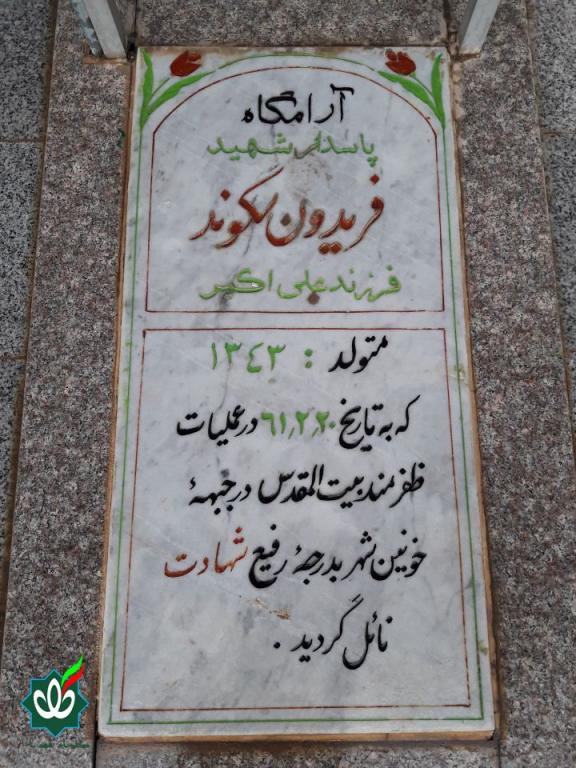 آرامگاه
پاسدار شهید
فریدون سگوند
فرزند علی اکبر
متولد : ١٣٤٣
که به تاریخ ٦١٫٢٫٢٠ در عملیات
ظفرمند بیت المقدس در جبههٔ
خونین شهر بدرجهٔ رفیع شهادت
نائل گردید .